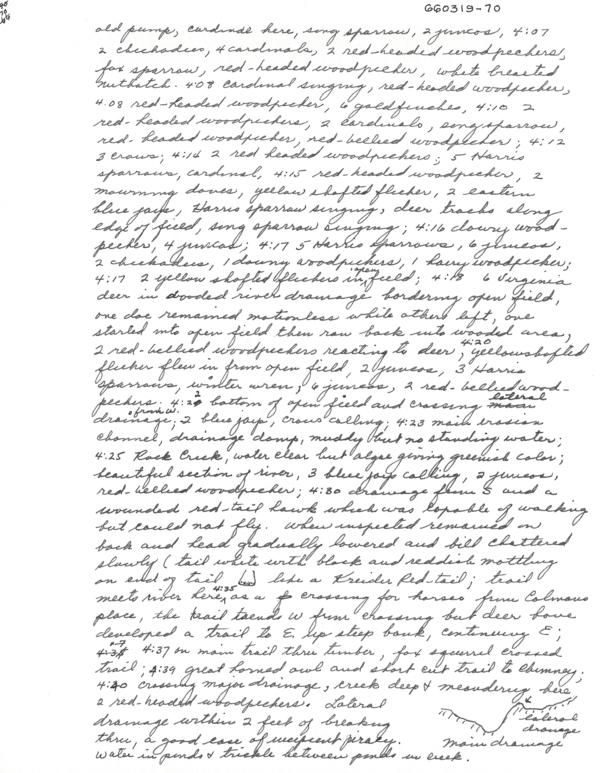 GGO319-70
old pump, cardinal here, song sparrow, 2 juncos, 4:07
2 chickadees, 4 cardinals, 2 red-headed woodpeckers,
fox sparrow, red-headed woodpecker, white breasted
nuthatch. 4:08 cardinal singing, red-headed woodpecker,
4:08 red-headed woodpecker, 6 goldfinches, 4:10 2
red-headed woodpeckers, 2 cardinals, song sparrow,
red-headed woodpecker, red-bellied woodpecker; 4:12
3 crows; 4:14 2 red headed woodpeckers; 5 Harris
sparrows, cardinal, 4:15 red-headed woodpecker, 2
mourning doves, yellow shafted flicker, 2 eastern
blue jays, Harris sparrow singing, deer tracks along
edge of field, song sparrow singing; 4:16 downy wood-
pecker, 4 juncos; 4:17 5 Harris sparrows, 6 juncos,
2 chickadees, 1 downy woodpeckers, 1 hairy woodpecker;
4:17 2 yellow shafted flickers in open field; 4:18 6 Virginia
deer in wooded river drainage bordering open field,
one doe remained motionless while others left, one
started into open field then ran back into wooded area,
2 red-bellied woodpeckers reacting to deer; 4:20 yellowshafted
flicker flew in from open field, 2 juncos, 3 Harris
sparrows, winter wren, 6 juncos, 2 red-bellied wood-
peckers. 4:20 bottom of open field and crossing main lateral
drainage from W. 2 blue jays, crows calling; 4:23 main erosion
channel, drainage damp, muddy but no standing water;
4:25 Rock Creek, water clear but algae giving greenish color;
beautiful section of river, 3 blue jays calling, 2 juncos,
red-bellied woodpecker; 4:30 drainage from S and a
wounded red-tail hawk which was capable of walking
but could not fly. When inspected remained on
back and head gradually lowered and bill chattered
slowly (tail white with black and reddish mottling
on end of tail like a Kreider Red-tail; trail
meets river here, 4:35 as a crossing for horses from Colmans
place, the trail trends W from crossing but deer have
developed a trail to E, up steep bank, continuing E;
4:37 on main trail thru timber, fox squirrel crossed
trail; 4:39 great horned owl and short cut trail to Chimney;
4:40 crossing major drainage, creek deep & meandering here
2 red-headed woodpeckers. Lateral
drainage within 2 feet of breaking
thru, a good case of incipient piracy.
Water in ponds & trickle between ponds in creek.
lateral
drainage
main drainage